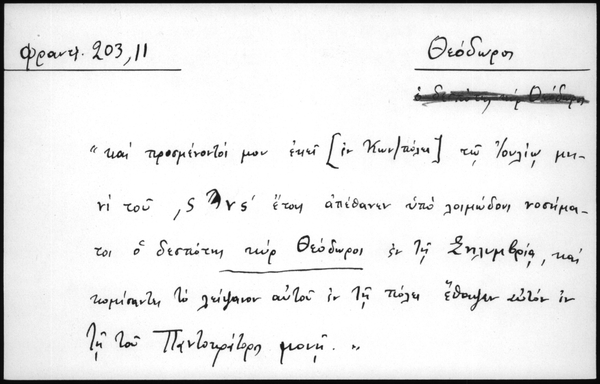 Φραντζ. 203, 11
Θεόδωρος
ὁ δεσπότης κὺρ Θεόδωρος
"καὶ προσμένοντός μου ἐκεῖ [ἐν Κων/πόλει] τῷ Ἰουλίῳ μη-
νὶ τοῦ ,ς ϡ ν ς' ἔτους ἀπέθανεν ὑπὸ λοιμώδους νοσήμα-
τος ὁ δεσπότης κὺρ Θεόδωρος ἐν τῇ Σηλυμβρίᾳ, καὶ
κομίσαντες τὸ λείψανον αὐτοῦ ἐν τῇ πόλει ἔθαψαν αὐτὸν ἐν
τῇ τοῦ Παντοκράτορος μονῇ."